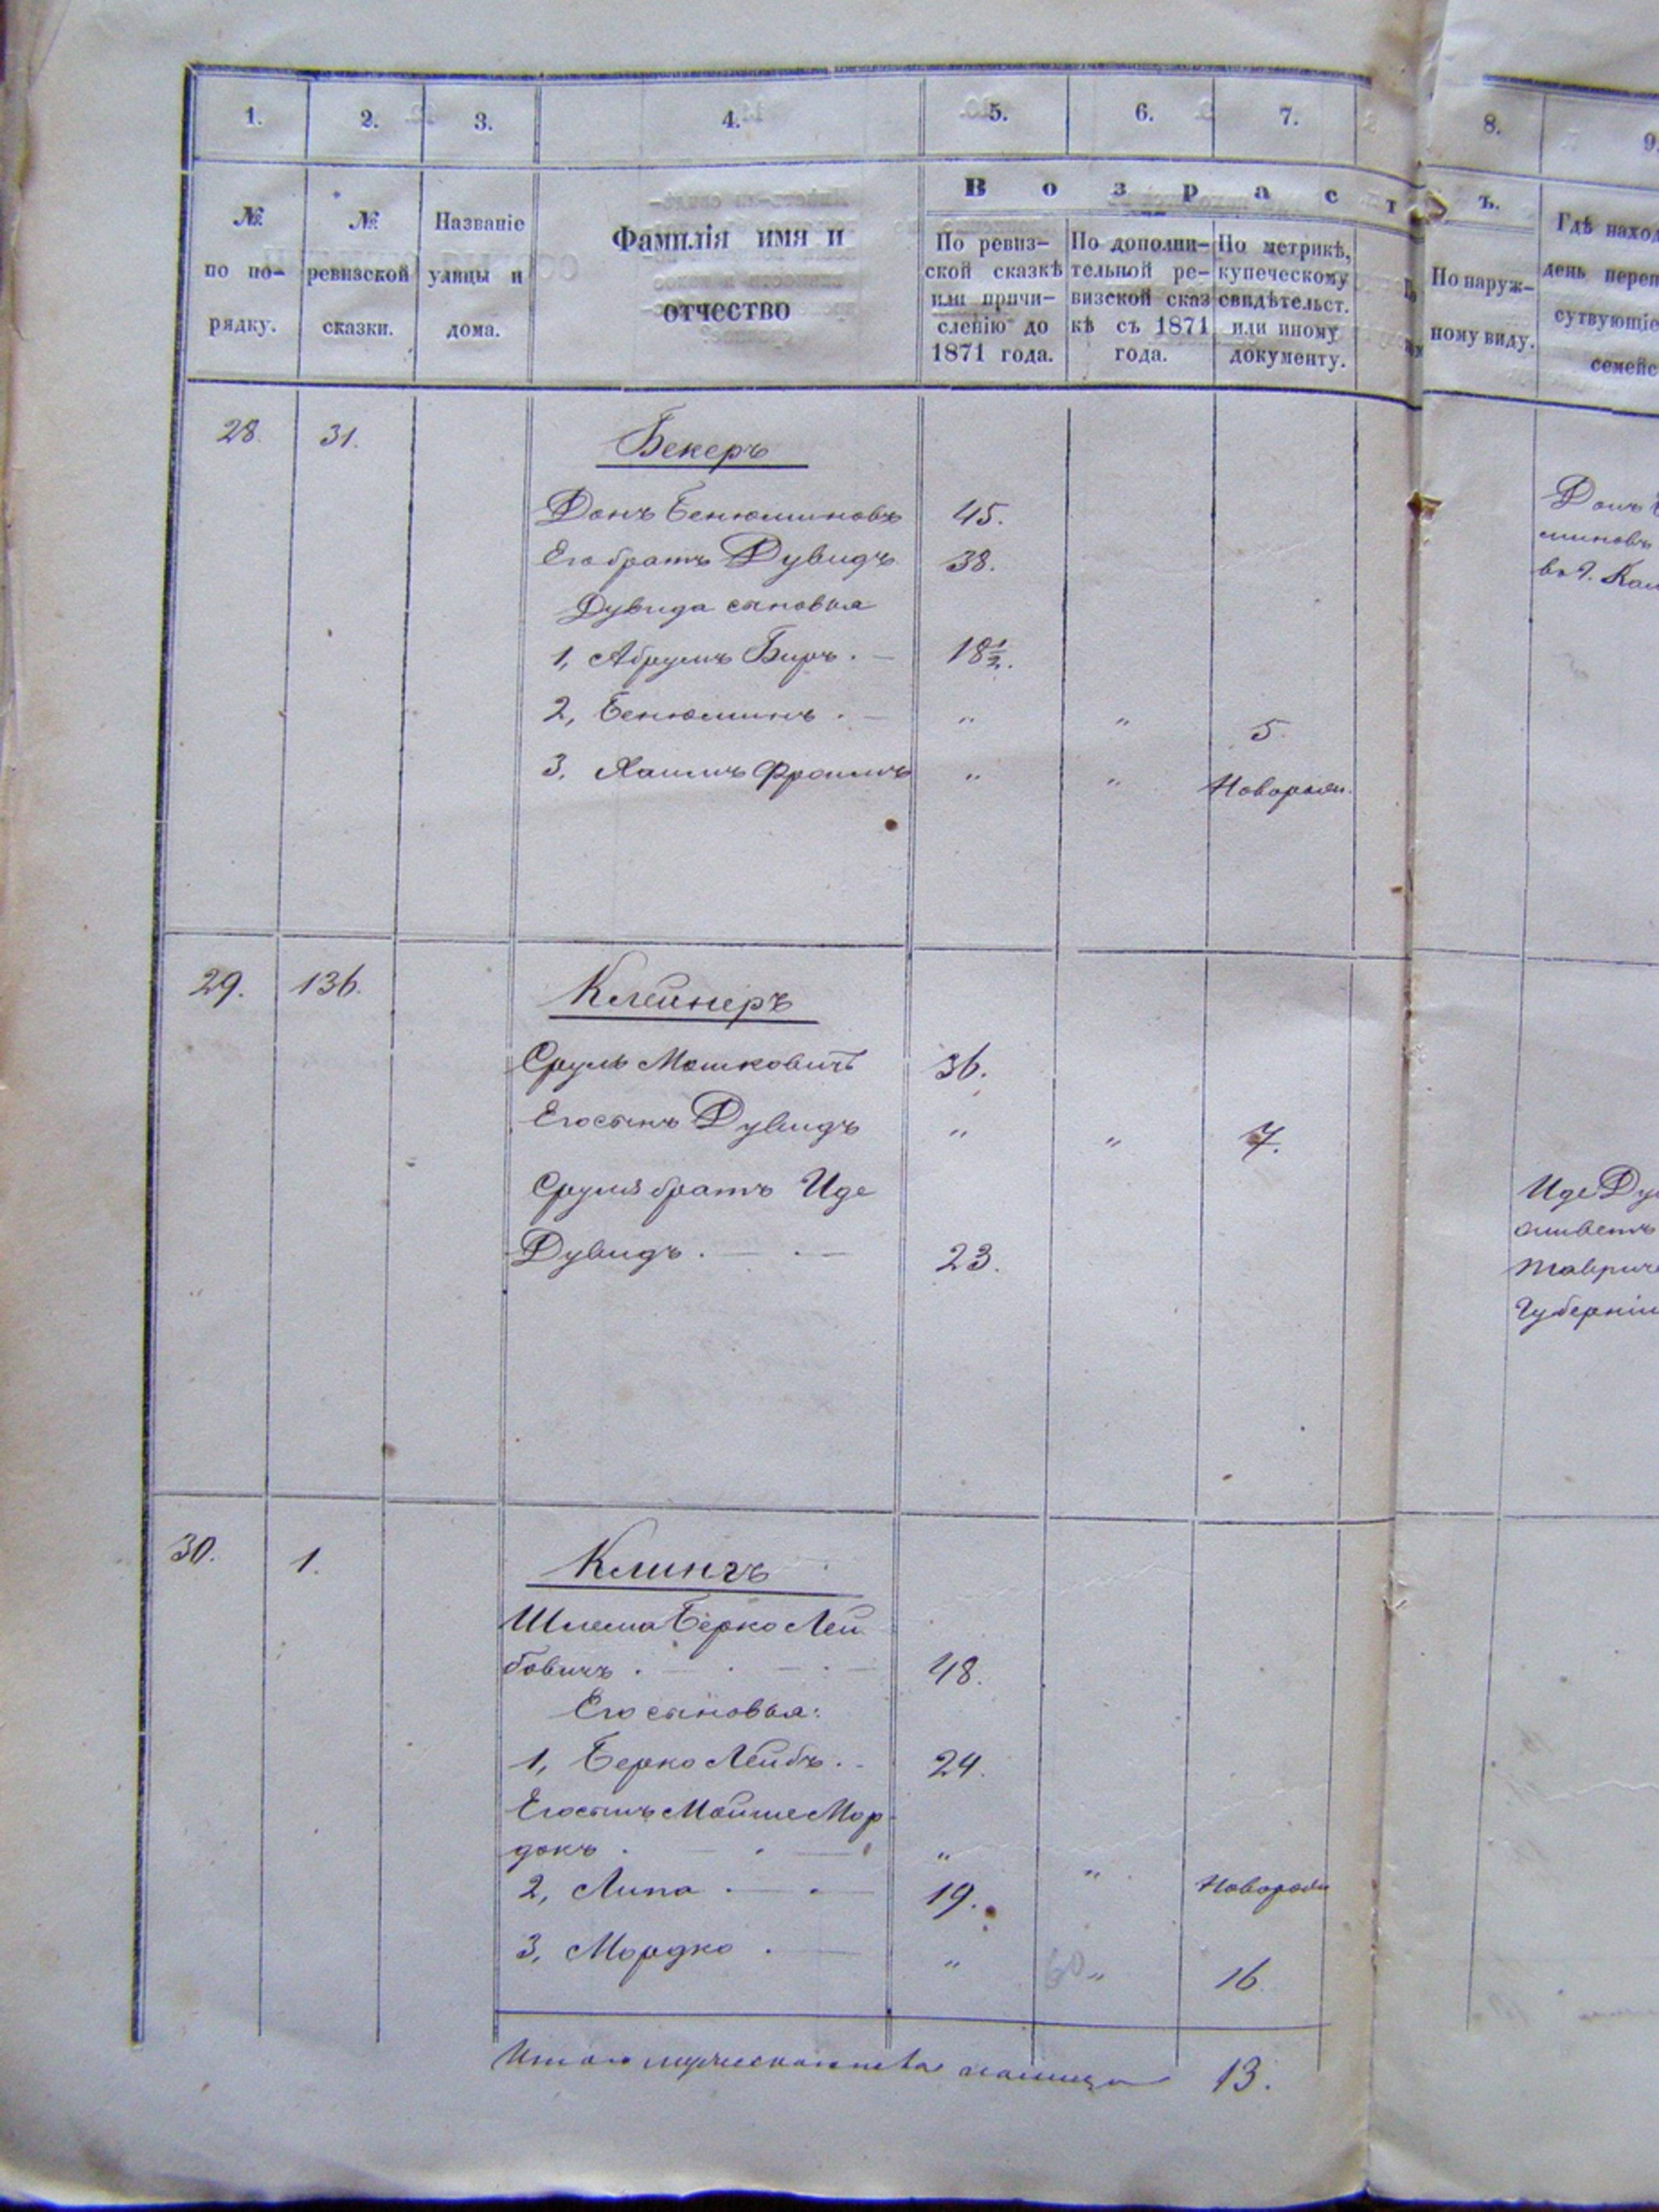 1. 2. 3. 4. 5. 6. 7. 8. 9.
№ по по-рядку.
№ ревизской сказки.
Названіе улицы и дома.
Фамилія имя и отчество
Возрастъ.
По ревиз-
ской сказкѣ
или причи-
сленію до
1871 года.
По дополни-
тельной ре-
визской сказ
кѣ съ 1871
года.
По метрикѣ,
купеческому
свидѣтельст.
или иному
документу.
По наруж-
ному виду.
Гдѣ наход
день переп
сутвующіе
семейс
28. 31. Бекеръ
Донъ Бенюминовъ 45.
Его братъ Дувидъ 38.
Дувида сыновья
1, Абрумъ Биръ . — 18½.
2, Бенюминъ . — " " 5.
3, Хаимъ Фроимъ " " Новорожд.
Донъ
миновъ
въ г. Кам
29. 136. Клейнеръ
Сруль Мошковичъ 36.
Его сынъ Дувидъ " " 7.
Сруля братъ Иде
Дувидъ . — . — 23.
Иде Ду
Тавриче
Губерніи
30. 1. Клингъ
Шлема Берко Лей
бовичъ . — . — . — 48.
Его сыновья:
1, Берко Лейбъ . - 24.
Его сынъ Мойше Мор-
докъ . — . — " " Новорожд
2, Липа . — . — 19.
3, Мордко . — " 60 " 16.
Итого мужескаго пола 13.